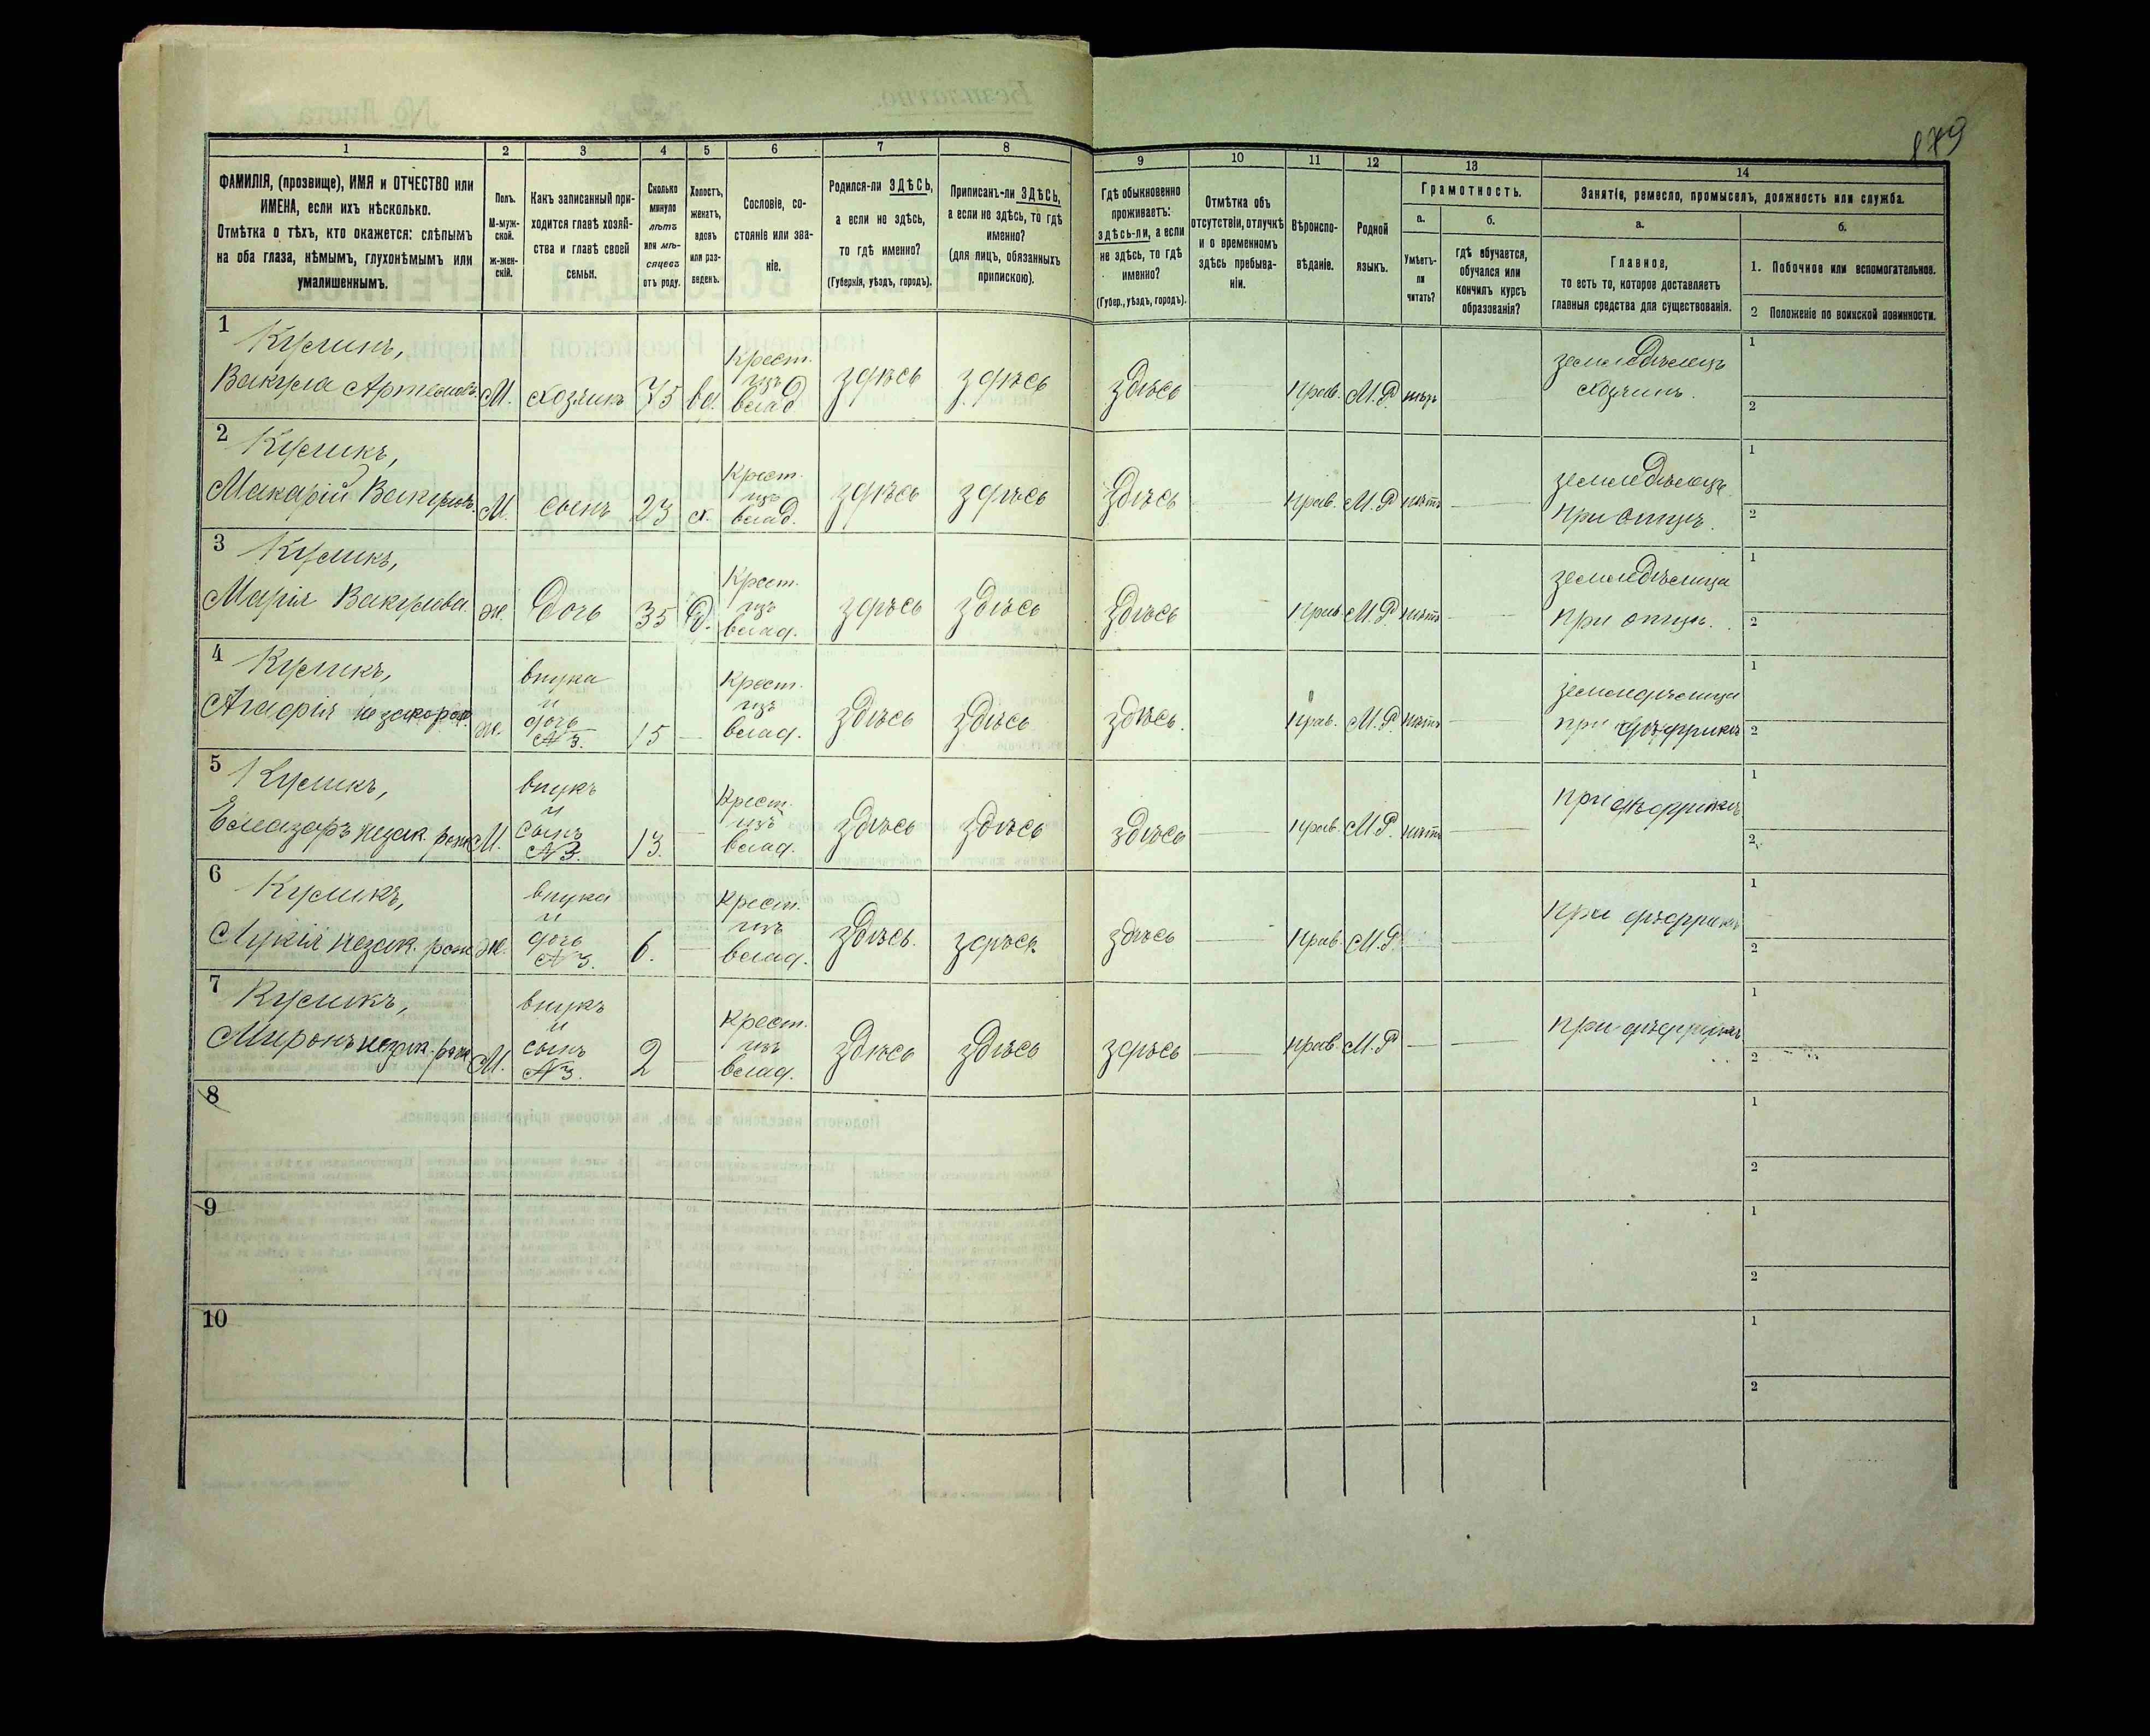 879
1 2 3 4 5 6 7 8 9 10 11 12 13 14
ФАМИЛІЯ, (прозвище), ИМЯ и ОТЧЕСТВО или
ИМЕНА, если ихъ нѣсколько.
Отмѣтка о тѣхъ, кто окажется: слѣпымъ
на оба глаза, нѣмымъ, глухонѣмымъ или
умалишеннымъ.
Полъ.
М-муж-
ской.
ж-жен-
скій.
Какъ записанный при-
ходится главѣ хозяй-
ства и главѣ своей
семьи.
Сколько
минуло
лѣтъ
или мѣ-
сяцевъ
отъ роду.
Холостъ,
женатъ,
вдовъ
или раз-
веденъ.
Сословіе, со-
стояніе или зва-
ніе.
Родился-ли ЗДѢСЬ,
а если не здѣсь,
то гдѣ именно?
(Губернія, уѣздъ, городъ).
Приписанъ-ли ЗДѢСЬ,
а если не здѣсь, то гдѣ
именно?
(для лицъ, обязанныхъ
припискою).
Гдѣ обыкновенно
проживаетъ:
здѣсь-ли, а если
не здѣсь, то гдѣ
именно?
(Губер., уѣздъ, городъ).
Отмѣтка объ
отсутствіи, отлучкѣ
и о временномъ
здѣсь пребыва-
ніи.
Вѣроиспо-
вѣданіе.
Родной
языкъ.
Грамотность.
а.
Умѣетъ-
ли
читать?
б.
гдѣ обучается,
обучался или
кончилъ курсъ
образованія?
Занятіе, ремесло, промыселъ, должность или служба.
а.
Главное,
то есть то, которое доставляетъ
главныя средства для существованія.
б.
1. Побочное или вспомогательное.
2 Положеніе по воинской повинности.
1
Куликъ,
Вакула Артемовъ М. хозяинъ 75 вд. Крест. изъ влад. здѣсь здѣсь здѣсь прав. М.Р. нѣтъ земледѣлецъ хозяинъ.
1
2
2
Куликъ,
Макарій Вакуловъ М. сынъ 23 х. Крест. изъ влад. здѣсь здѣсь здѣсь прав. М.Р. нѣтъ земледѣлецъ при отцѣ.
1
2
3
Куликъ,
Марія Вакулова ж. дочь 35 д. Крест. изъ влад. здѣсь здѣсь здѣсь прав. М.Р. нѣтъ земледѣлица при отцѣ.
1
2
4
Куликъ,
Агафія ж. внука и дочь №3. 15 Крест. изъ влад. здѣсь здѣсь здѣсь. прав. М.Р. нѣтъ земледѣлица при дѣдушкѣ
1
2
5
Куликъ,
Елеазаръ незак. рожд М. внукъ и сынъ №3. 13. Крест. изъ влад. здѣсь здѣсь здѣсь прав. М.Р. нѣтъ при дѣдушкѣ
1
2
6
Куликъ,
Лукія незак. рож ж. внука и дочь №3. 6. Крест. изъ влад. здѣсь. здѣсь здѣсь прав. М.Р. при дѣдушкѣ
1
2
7
Куликъ,
Миронъ незак. рож М. внукъ и сынъ №3. 2 Крест. изъ влад. здѣсь здѣсь здѣсь прав. М.Р при дѣдушкѣ
1
2
8
1
2
9
1
2
10
1
2